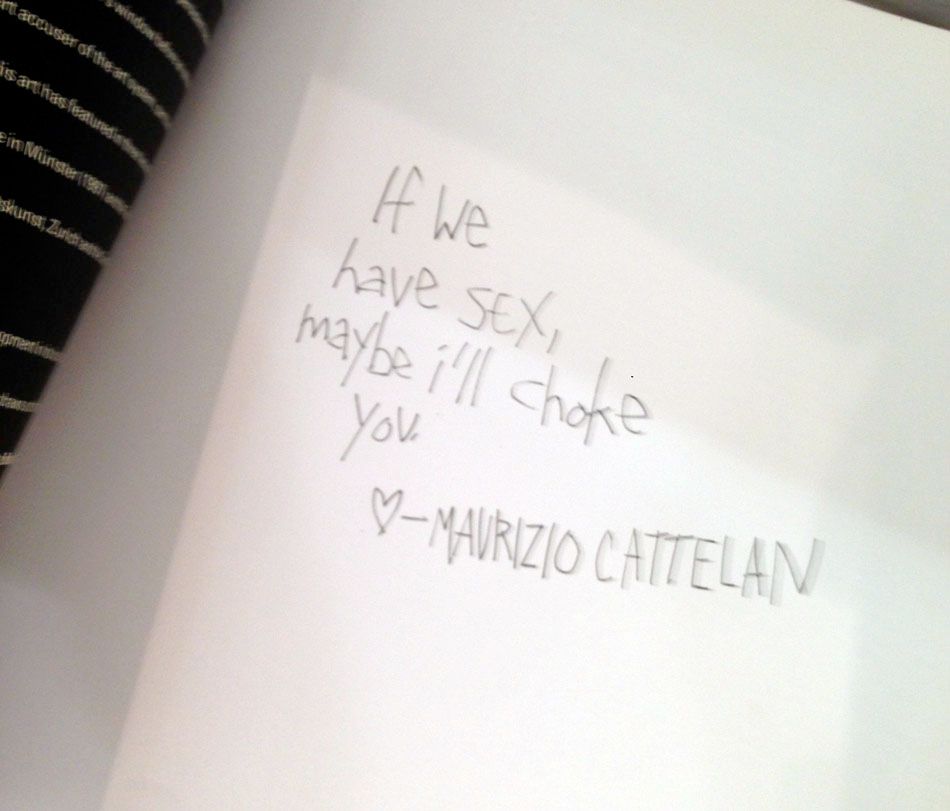 window
art accuser of the art system
his art has featured in
e in Münster (1987
skunst, Zurich
If We
have SEX,
maybe i'll choke
you.
♡—MAURIZIO CATTELAN